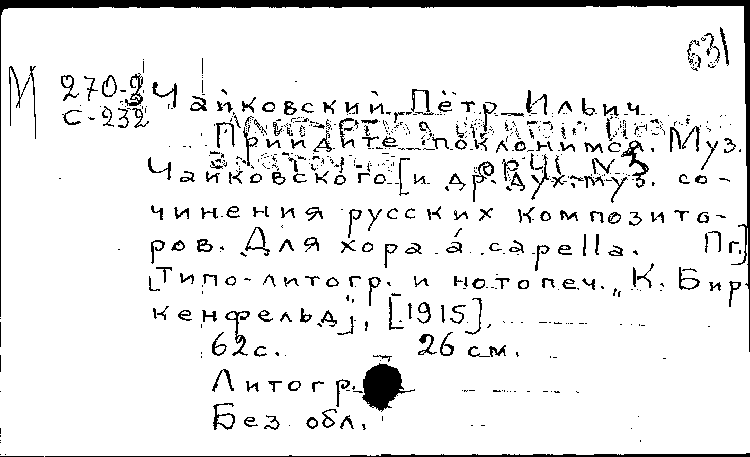 631
М 270-2 Чайковский, Пётр Ильич
С-232
Приидите поклонимся. Муз.
Чайковского [и др. дух. муз. со-
чинения русских композито-
ров. Для хора á capella. Пг.]
[Типо-литогр. и нотопеч. „К. Бир-
кенфельд"], [1915].
62с. — 26 см.
Литогр.
Без обл.